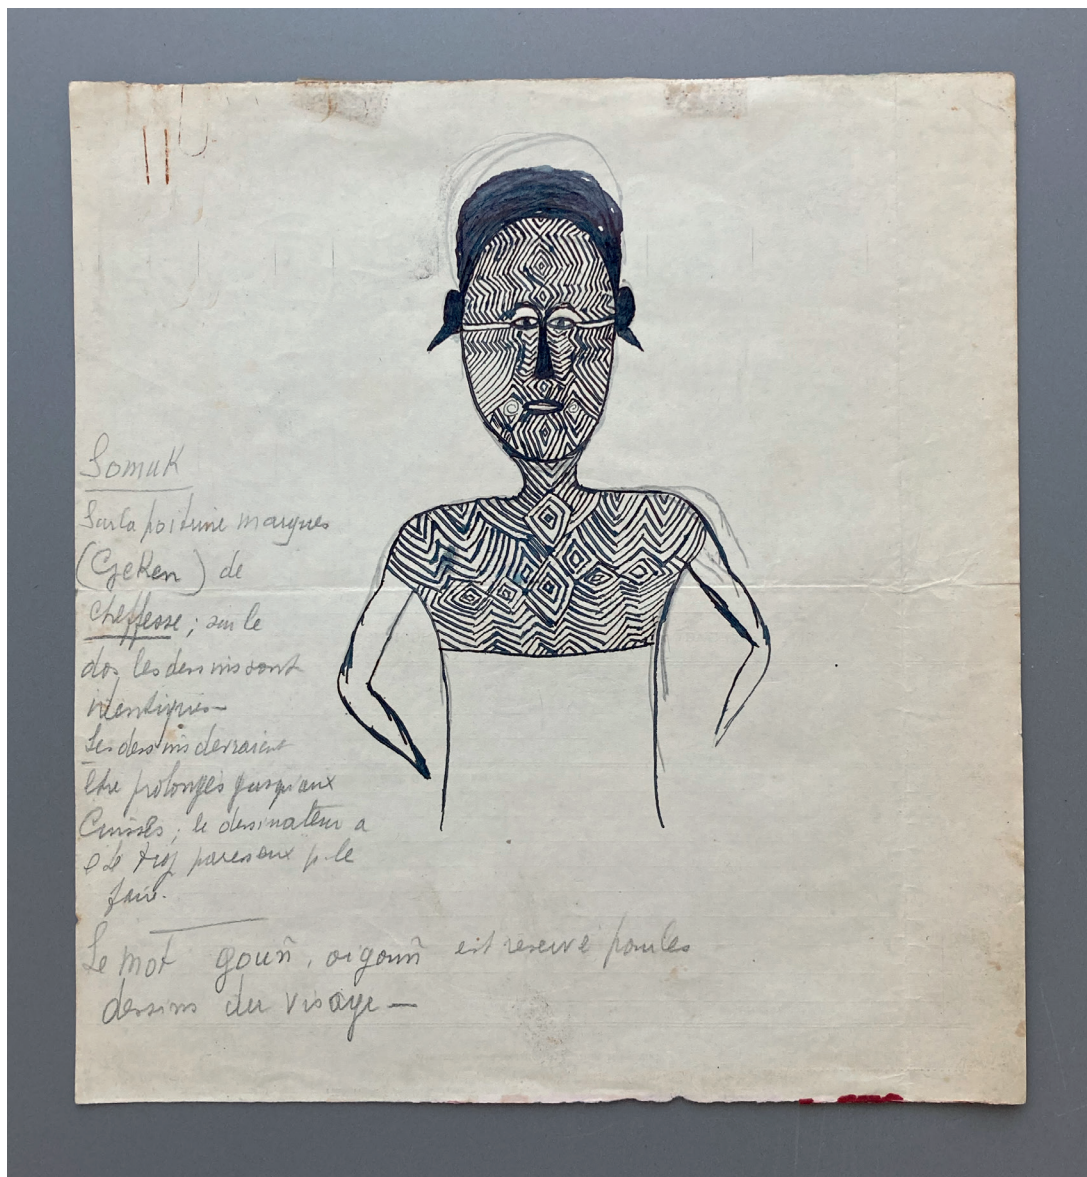 Somuk
Sur la poitrine marques
(Geken) de
cheffesse ; sur le
dos les dessins sont
identiques
Les dessins devraient
être prolongés jusqu'aux
Cuisses ; le dessinateur a
été trop paresseux p. le
faire.
Le mot gouñ, oigouñ est reservé pour les
dessins du visage —